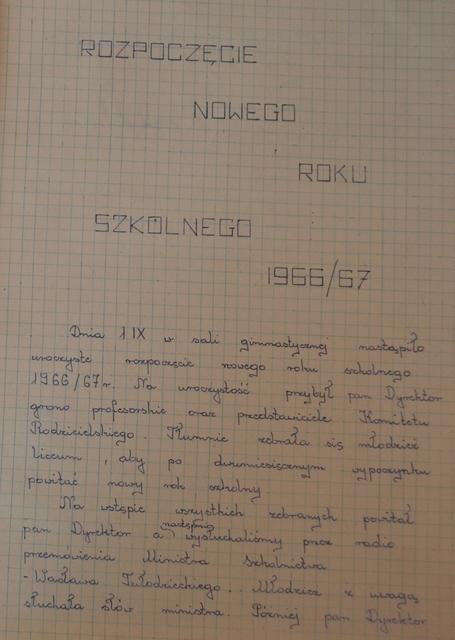 ROZPOCZĘCIE
NOWEGO
ROKU
SZKOLNEGO
1966/67
Dnia 1 IX w sali gimnastycznej nastąpiło
uroczyste rozpoczęcie nowego roku szkolnego
1966/67 r. Na uroczystość przybył pan Dyrektor
grono profesorskie oraz przedstawiciele Komitetu
Rodzicielskiego. Tłumnie zebrała się młodzież
liceum, aby po dwumiesięcznym wypoczynku
powitać nowy rok szkolny
Na wstępie wszystkich zebranych powitał
pan Dyrektor a następnie wysłuchaliśmy przez radio
przemówienia Ministra Szkolnictwa
- Wacława Tułodzieckiego... Młodzież z uwagą
słuchała słów ministra. Później pan Dyrektor